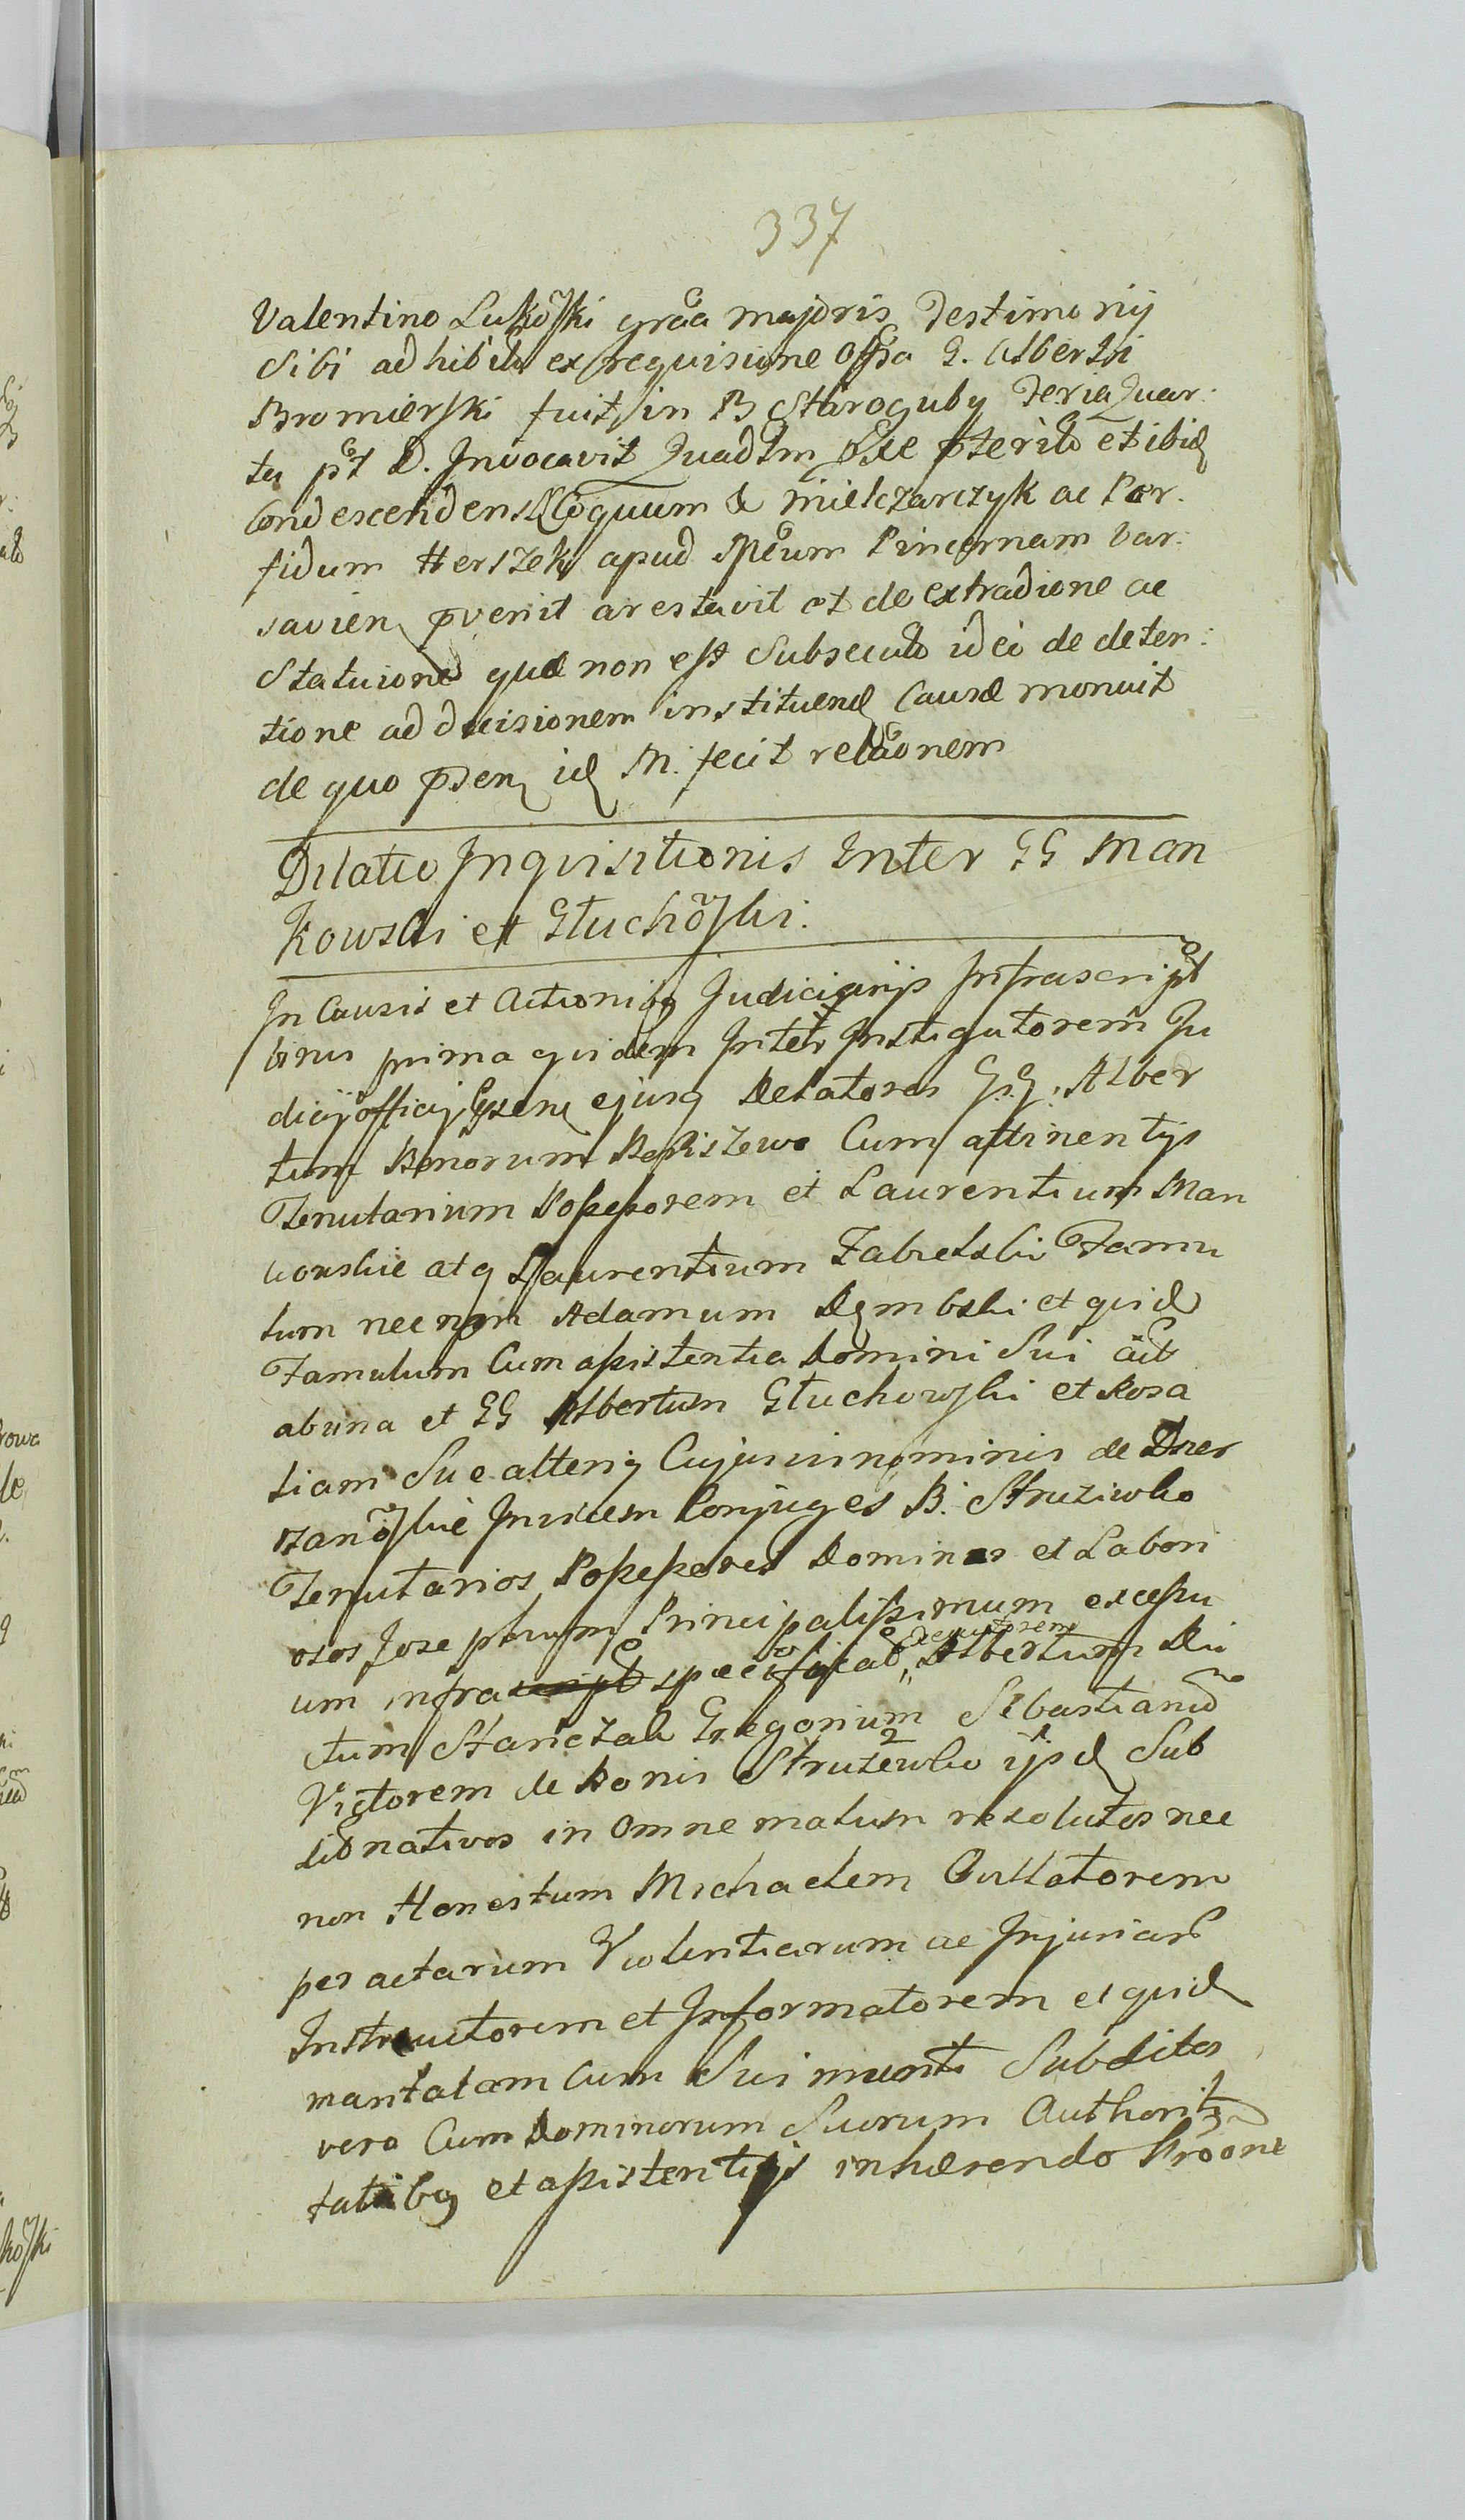 337
Valentino Lukoski grãa majoris Testimonij
Sibi adhibito ex requisitione Offsa G. Alberti
Bromierski fuit in B Staroguby Feria Quar:
ta pt D. Invocavit Quadlm pterito et ibid
Condescendens Mielczarczyk ac Per
fidum Herszek apud Pincernam Var:
savien pvenit arestavit et de extradione ac
Statuione que non est Subsecuta ideo de deten:
tione ad decisionem instituend Causæ monuit
de quo psen id M. fecit relaonem
Dilatio Inquisitionis Inter GG Man
kowski et Głuchoski.
In Causis et Actionibg Judiciarijs Infrascript
binis prima quidem Inter Instigatorem Ju
dicij officij ejusq Delatores GG. Alber
tum Bonorum Cum attinentijs
Tenutarium Possessorem et Laurentium Man
kowskie atq Laurentium Zabielski Famu
lum necnon Adamum Dembski et quid
Famulum Cum assistentia Domini Sui act
abuna et GG Albertum Głuchowski et Rosa
liam Sue alteriq Cujusvis nominis de Dzier
zanoskie Invicem Conjuges B. Struziwko
Tenutarios Possessores Dominos et Labori
osos Josephum Principalissimum excessu
um infra script specificat exeqtorem Albertum Di
ctum Stanczak Gregorium Sebastianu
Victorem de Bonis Struzewko ijsd Sub
ditos nativos in omne malum resolutos nec
non Honestum Michaelem
peractarum Violentiarum ac Injuriar
Instructorem et Informatorem et quid
maritatam Cum Sui mariti Subditos
vero Cum Dominorum Suorum Authorit
tatibg et assistentijs inhærendo Proone